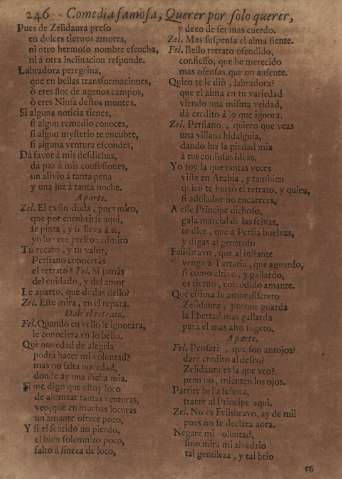 246 Comedia famosa, Querer por solo querer,
Pues de Zelidaura preso
en dolces tiernos amores,
ni otro hermoso nombre escucha,
ni a otra inclinacion responde.
Labradora peregrina,
que en bellas transformaciones,
ò eres flor de agenos campos,
ò eres Ninfa destos montes.
Si alguna noticia tienes,
si algun remedio conoces,
si algun mysterio te encubre,
si alguna ventura escondes,
Dà favor à mis desdichas,
dà paz à mis confusiones,
un alivio à tanta pena
y una luz à tanta noche.
A parte.
Zel. El es sin duda, pues miro,
que por encubrirse aqui,
Tu recato, y tu valor,
Persiano
el retrato? Fel. Si
del cuidado, y del amor
Le aparto, que dudas dello?
Zel. Este mira, en el repara.
Dale el retrato.
Fel. Quando en vello le ignorára,
le conociera en lo bello.
Que novedad de alegria
podrà hacer mi voluntad?
mas no falta novedad,
donde ay una dicha mia.
Si me digo que estoy loco
de alcanzar tantas venturas,
veo, que en muchas locuras
un amante ofrece poco,
Y si el sentido no pierdo,
el bien solemnizo poco,
falto à fineza de loco,
y dexo de ser mas cuerdo.
Zel. Mas suspensa el alma siente.
Fel. Bello retrato ofendido,
confiesso, que he merecido
mas ofensas que un ausente.
Quien te le diò, labradora?
que el alma en tu variedad
viendo una misma verdad,
dà credito à lo que ignora.
Zel. Persiano, quiero que veas
una villana hidalguia,
dando luz la piedad mia
a tus confusas ideas.
Yo soy la que tantas veces
viste en Arabia, y tambien
quien te hurtò el retrato, y quien,
si adulador no encareces,
A esse Principe dichoso,
gala marcial de las selvas,
te dice, que a Persia buelvas,
y digas al generoso
Felisbravo, que al instante
venga à Tartaria, que aguardo,
si como altivo, y gallardo,
es tierno, entendido amante.
Que estima
Zelidaura, porque guarda
la libertad mas gallarda
para el mas alto sugeto.
A parte.
Fel. Pensarè, que son antojos?
darè credito al deseo?
Zelidaura es la que veo?
pero no, mienten los ojos.
Partire bella señora,
traere al Principe aqui.
Zel. No es Felisbravo, ay de mi!
pues no se declara aora.
Negarè mi voluntad,
sino mira mi alvedrio
tal gentileza, y tal brio
es